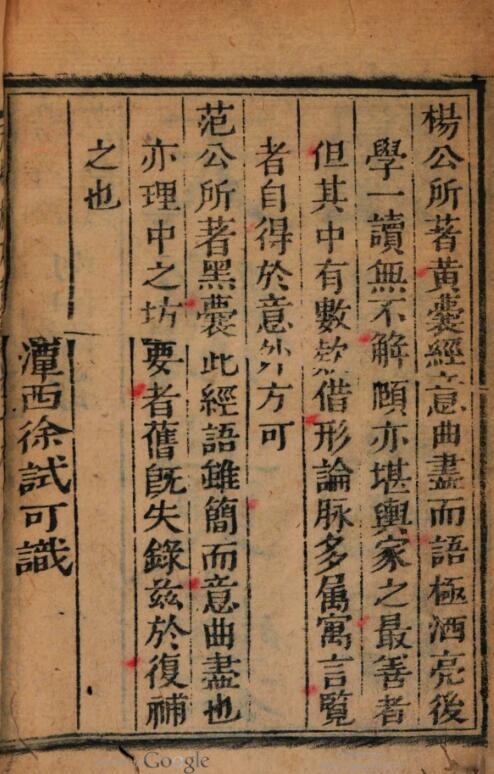 楊公所著黃囊經意曲盡而語極洒亮後
學一讀無不解頤亦堪輿家之最善者
但其中有數款借形論脉多属寓言覽
者自得於意外方可
范公所著黑囊此經語雖簡而意曲盡也
亦理中之坊要者舊既失錄茲於復補
之也
潭西徐試可識
Google